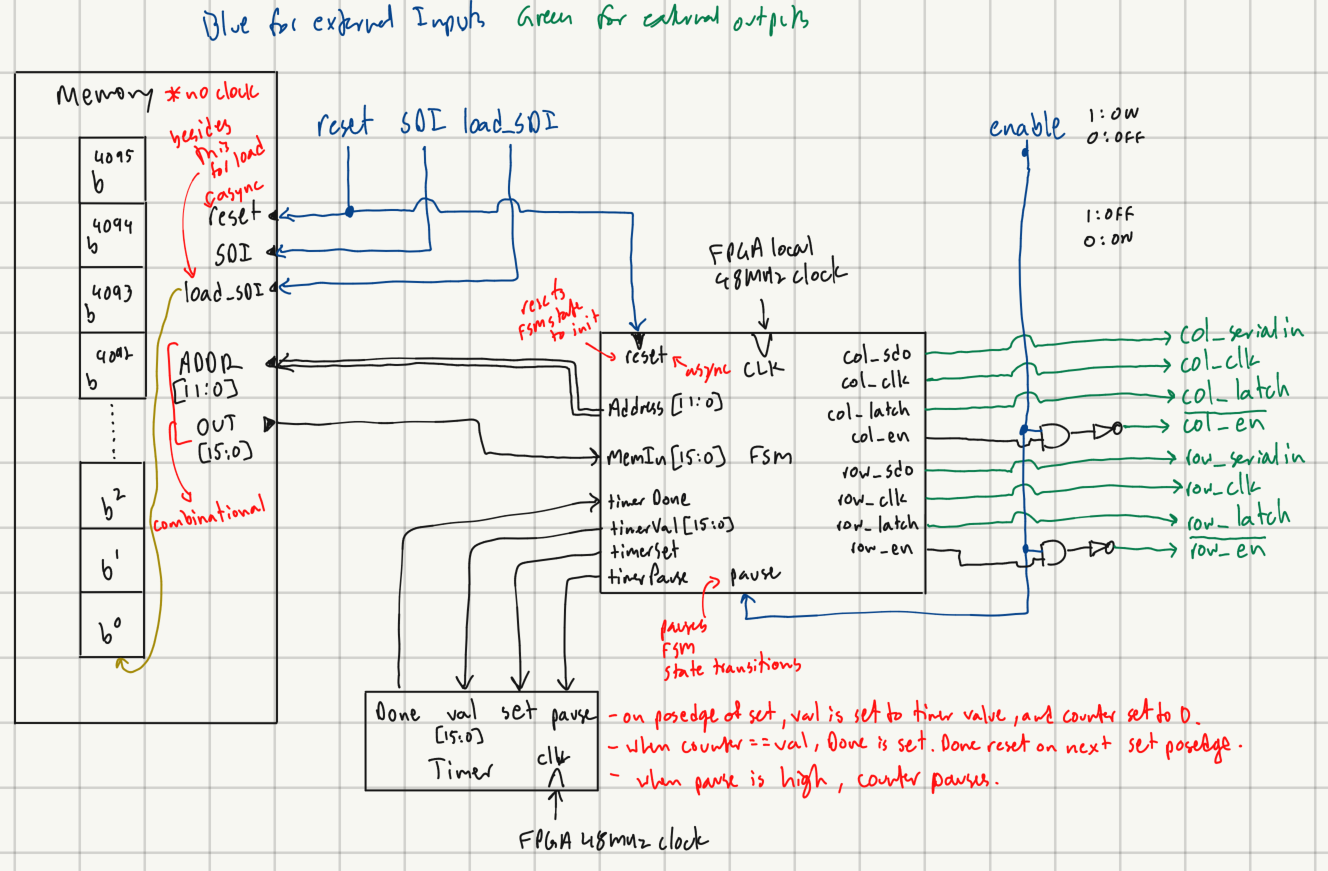 Blue for external Inputs Green for external outputs
Memory *no clock
besides
this
for load
async
reset
SDI
load_SDI
ADDR
[11:0]
OUT
[15:0]
combinational
4095
b
4094
b
4093
b
4092
b
b2
b1
b0
reset SDI load_SDI
enable
1:ON
0:OFF
1:OFF
0:ON
FPGA local
48MHz clock
resets
FSM state
to init
reset
async
CLK
Address [11:0]
MemIn[15:0] FSM
timer Done
timerVal[15:0]
timerset
timerPause
pause
col_sdo
col_clk
col_latch
col_en
row_sdo
row_clk
row_latch
row_en
col_serialin
col_clk
col_latch
col_en
row_serialin
row_clk
row_latch
row_en
pauses
FSM
state transitions
Done val set pause
[15:0]
Timer
clk
FPGA 48MHz clock
- on posedge of set, val is set to timer value, and counter set to 0.
- when counter == val, Done is set. Done reset on next set posedge.
- when pause is high, counter pauses.